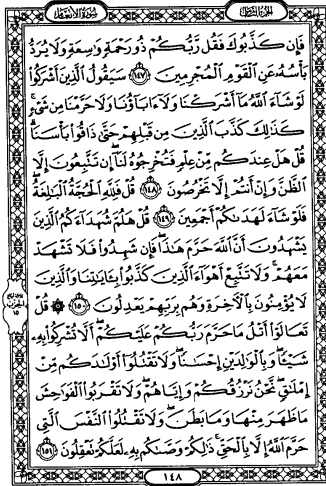 الجزء الثامن
سورة الأنعام
فَإِن كَذَّبُوكَ فَقُل رَّبُّكُمْ ذُو رَحْمَةٍ وَاسِعَةٍ وَلَا يُرَدُّ
بَأْسُهُ عَنِ الْقَوْمِ الْمُجْرِمِينَ ١٤٧ سَيَقُولُ الَّذِينَ أَشْرَكُوا
لَوْ شَاءَ اللَّهُ مَا أَشْرَكْنَا وَلَا ءَابَاؤُنَا وَلَا حَرَّمْنَا مِن شَيْءٍ
كَذَٰلِكَ كَذَّبَ الَّذِينَ مِن قَبْلِهِمْ حَتَّىٰ ذَاقُوا بَأْسَنَا
قُلْ هَلْ عِندَكُم مِّنْ عِلْمٍ فَتُخْرِجُوهُ لَنَا إِن تَتَّبِعُونَ إِلَّا
الظَّنَّ وَإِنْ أَنتُمْ إِلَّا تَخْرُصُونَ ١٤٨ قُلْ فَلِلَّهِ الْحُجَّةُ الْبَالِغَةُ
فَلَوْ شَاءَ لَهَدَىٰكُمْ أَجْمَعِينَ ١٤٩ قُلْ هَلُمَّ شُهَدَاءَكُمُ الَّذِينَ
يَشْهَدُونَ أَنَّ اللَّهَ حَرَّمَ هَٰذَا فَإِن شَهِدُوا فَلَا تَشْهَدْ
مَعَهُمْ وَلَا تَتَّبِعْ أَهْوَاءَ الَّذِينَ كَذَّبُوا بِـَٔايَٰتِنَا وَالَّذِينَ
لَا يُؤْمِنُونَ بِالْآخِرَةِ وَهُم بِرَبِّهِمْ يَعْدِلُونَ ١٥٠ ۞ قُلْ
تَعَالَوْا أَتْلُ مَا حَرَّمَ رَبُّكُمْ عَلَيْكُمْ أَلَّا تُشْرِكُوا بِهِ
شَيْئًا وَبِالْوَالِدَيْنِ إِحْسَٰنًا وَلَا تَقْتُلُوا أَوْلَٰدَكُم مِّنْ
إِمْلَٰقٍ نَّحْنُ نَرْزُقُكُمْ وَإِيَّاهُمْ وَلَا تَقْرَبُوا الْفَوَٰحِشَ
مَا ظَهَرَ مِنْهَا وَمَا بَطَنَ وَلَا تَقْتُلُوا النَّفْسَ الَّتِي
حَرَّمَ اللَّهُ إِلَّا بِالْحَقِّ ذَٰلِكُمْ وَصَّىٰكُم بِهِ لَعَلَّكُمْ تَعْقِلُونَ ١٥١
١٤٨